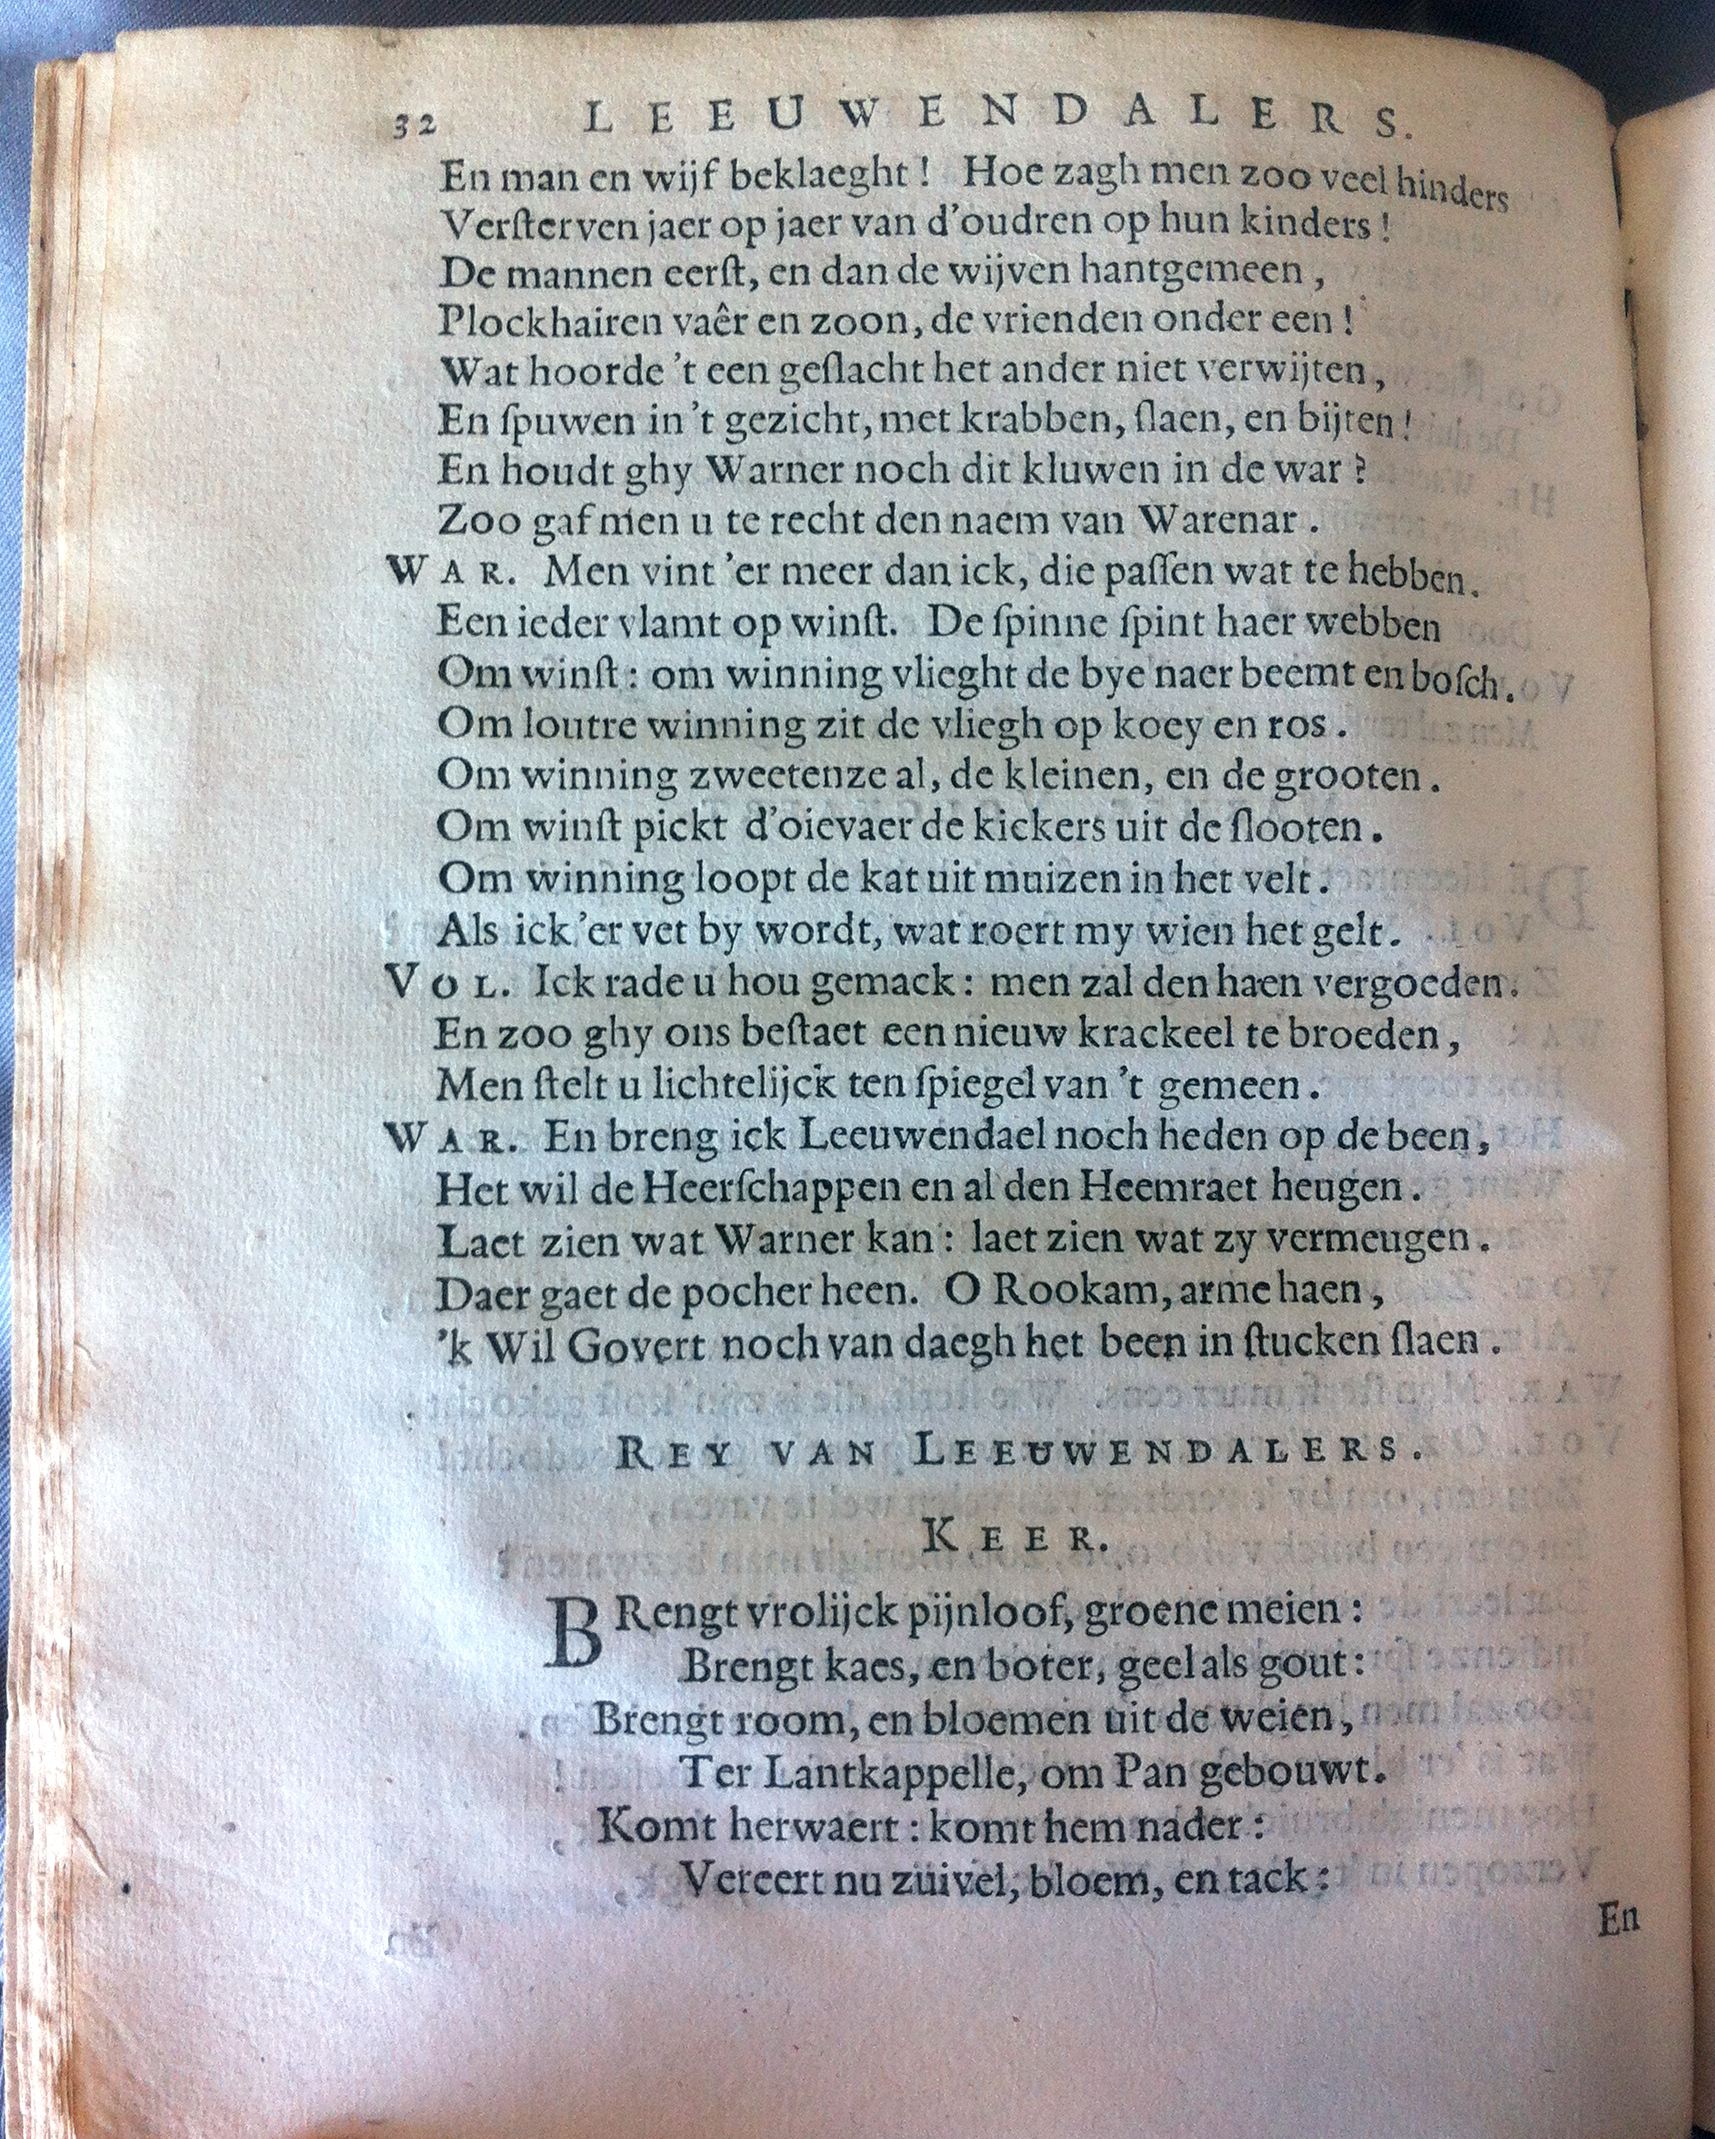 32 LEEUWENDALERS.
En man en wijf beklaeght! Hoe zagh men zoo veel hinders
Verſterven jaer op jaer van d'oudren op hun kinders!
De mannen eerſt, en dan de wijven hantgemeen,
Plockhairen vaêr en zoon, de vrienden onder een!
Wat hoorde 't een geſlacht het ander niet verwijten,
En ſpuwen in 't gezicht, met krabben, ſlaen, en bijten!
En houdt ghy Warner noch dit kluwen in de war?
Zoo gaf men u te recht den naem van Warenar.
WAR. Men vint 'er meer dan ick, die paſſen wat te hebben.
Een ieder vlamt op winſt. De ſpinne ſpint haer webben
Om winſt: om winning vlieght de bye naer beemt en boſch.
Om loutre winning zit de vliegh op koey en ros.
Om winning zweetenze al, de kleinen, en de grooten.
Om winſt pickt d'oievaer de kickers uit de ſlooten.
Om winning loopt de kat uit muizen in het velt.
Als ick 'er vet by wordt, wat roert my wien het gelt.
VOL. Ick rade u hou gemack: men zal den haen vergoeden.
En zoo ghy ons beſtaet een nieuw krackeel te broeden,
Men ſtelt u lichtelijck ten ſpiegel van 't gemeen.
WAR. En breng ick Leeuwendael noch heden op de been,
Het wil de Heerſchappen en al den Heemraet heugen.
Laet zien wat Warner kan: laet zien wat zy vermeugen.
Daer gaet de pocher heen. O Rookam, arme haen,
'k Wil Govert noch van daegh het been in ſtucken ſlaen.
REY VAN LEEUWENDALERS.
KEER.
BRengt vrolijck pijnloof, groene meien:
Brengt kaes, en boter, geel als gout:
Brengt room, en bloemen uit de weien,
Ter Lantkappelle, om Pan gebouwt.
Komt herwaert: komt hem nader:
Vereert nu zuivel, bloem, en tack:
En